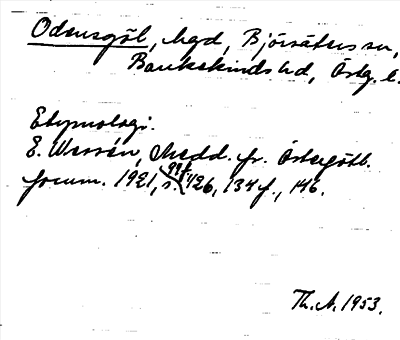 Odensgöl, hgd, Björsäters sn,
Bankekinds hd, Östg. l.
Etymologi.
E. Wessén, Medd. fr. Östergötl.
fornm. 1921, s. 99f, 126, 134 f., 146.
Th. A. 1953.